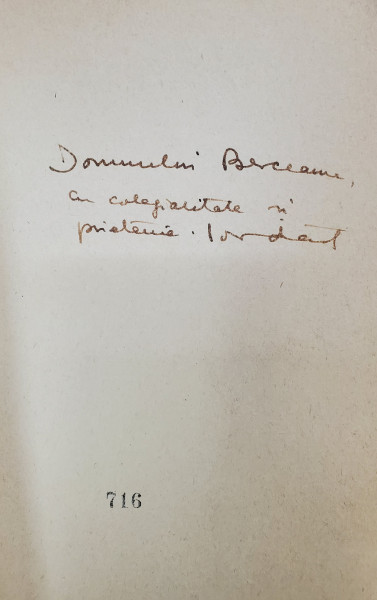 Domnului Berceanu,
cu colegialitate și
prietenie. Iordan
716